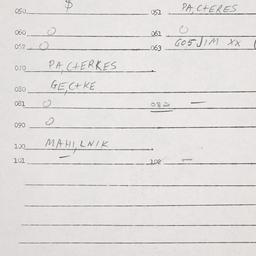 050 $ 051 PA,C+ERES
060 O 061 O
062 O 063 GO5JIM XX
070 PA,C+ERKES
080 GE,C+KE
081 O 082 —
090 O
100 MAHI,LNIK
101 — 102 —